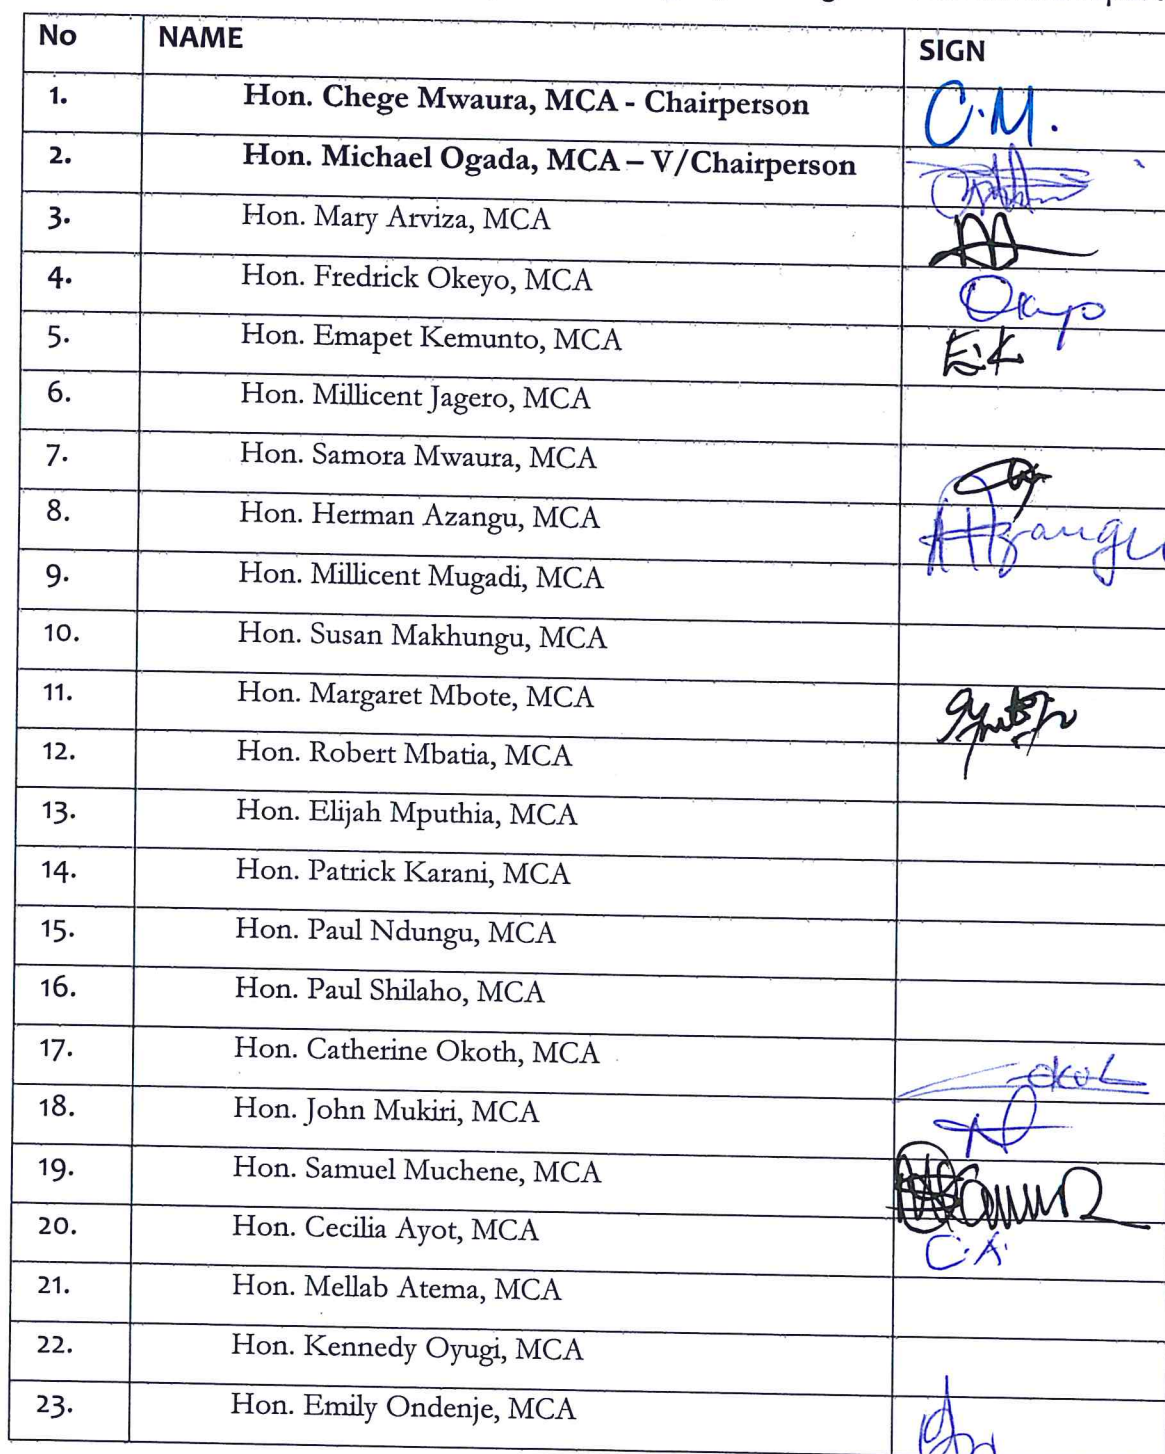 No NAME SIGN
1. Hon. Chege Mwaura, MCA - Chairperson C.M.
2. Hon. Michael Ogada, MCA – V/Chairperson
3. Hon. Mary Arviza, MCA
4. Hon. Fredrick Okeyo, MCA Okeyo
5. Hon. Emapet Kemunto, MCA E.K
6. Hon. Millicent Jagero, MCA
7. Hon. Samora Mwaura, MCA
8. Hon. Herman Azangu, MCA AHzangu
9. Hon. Millicent Mugadi, MCA
10. Hon. Susan Makhungu, MCA
11. Hon. Margaret Mbote, MCA
12. Hon. Robert Mbatia, MCA
13. Hon. Elijah Mputhia, MCA
14. Hon. Patrick Karani, MCA
15. Hon. Paul Ndungu, MCA
16. Hon. Paul Shilaho, MCA
17. Hon. Catherine Okoth, MCA
18. Hon. John Mukiri, MCA
19. Hon. Samuel Muchene, MCA
20. Hon. Cecilia Ayot, MCA C.A.
21. Hon. Mellab Atema, MCA
22. Hon. Kennedy Oyugi, MCA
23. Hon. Emily Ondenje, MCA